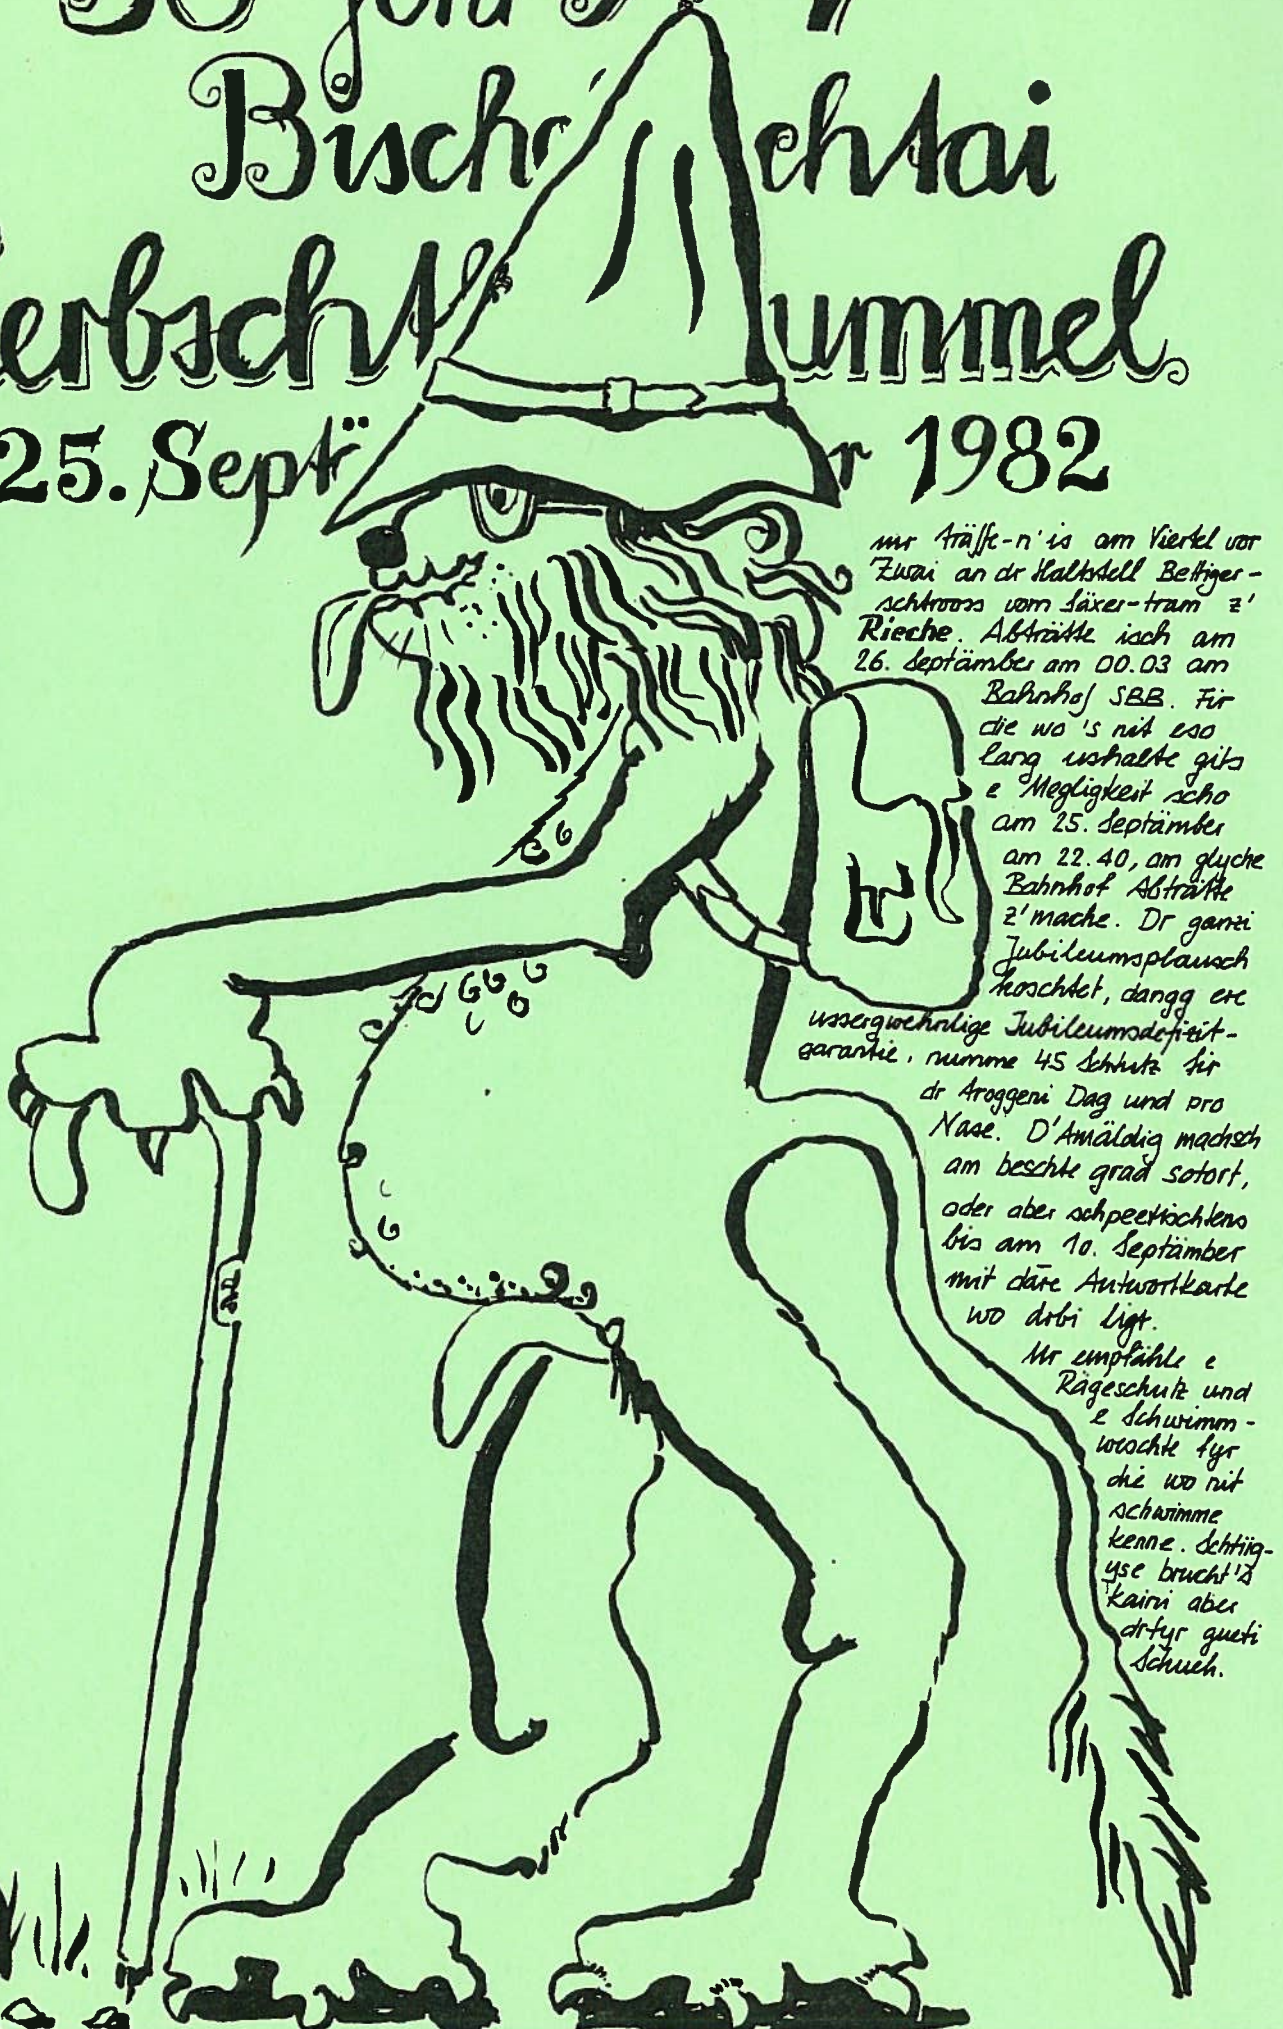 Bisch chtai
erbscht ummel
25. Sept r 1982
mr träffe-n'is am Viertel vor
Zwai an dr Haltstell Bettiger-
schtrooss vom Säxer-tram z'
Rieche. Abträtte isch am
26. Septämber am 00.03 am
Bahnhof SBB. Fir
die wo 's nit eso
lang ushalte gits
e Megligkeit scho
am 25. Septämber
am 22.40, am glyche
Bahnhof Abträtte
z'mache. Dr ganzi
Jubileumsplausch
koschtet, dangg ere
ussergwehnlige Jubileumsdefizit-
garantie, numme 45 Schtutz fir
dr Aroggeni Dag und pro
Nase. D'Amäldig machsch
am beschte grad sofort,
oder aber schpeetischtens
bis am 10. Septämber
mit däre Antwortkarte
wo drbi ligt.
Mr empfähle e
Rägeschutz und
e Schwimm-
weschte fyr
die wo nit
schwimme
kenne. Schtiig-
yse brucht's
kaini aber
drfyr gueti
Schueh.